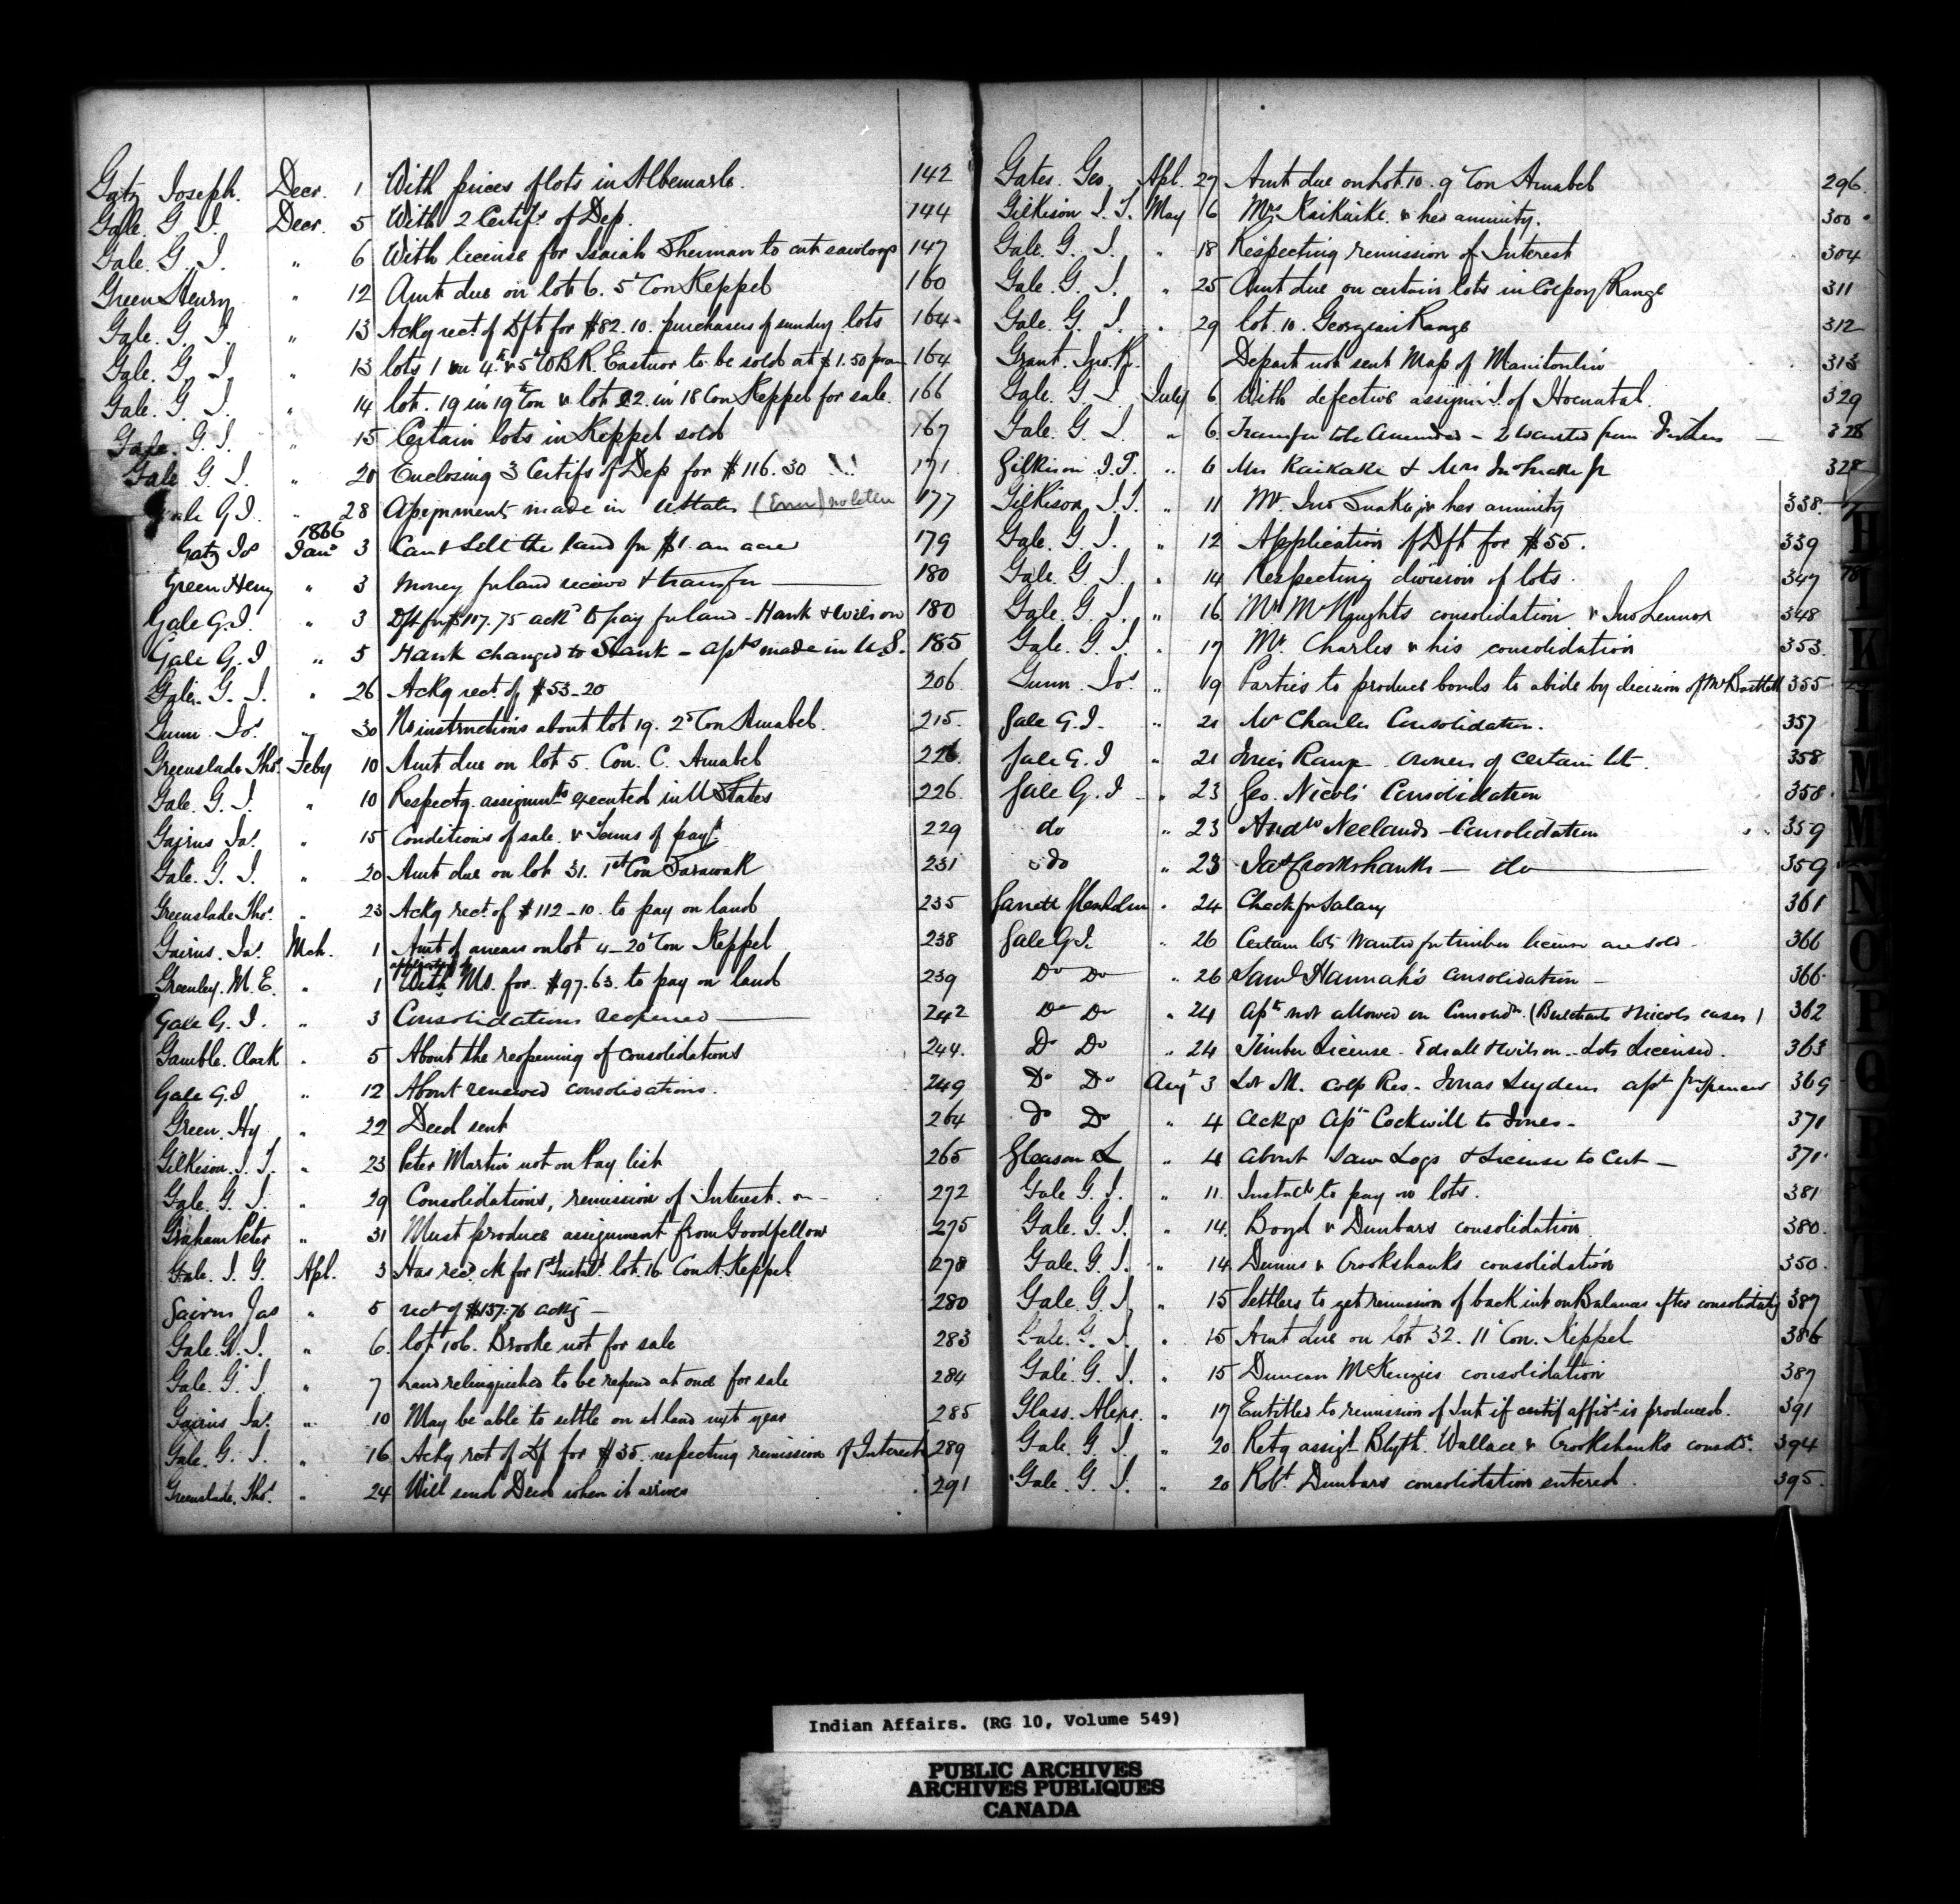 Gatz Joseph. Decr. 1 With prices of lots in Albemarle. 142
Gale. G. I. Decr. 5 With 2 Certifs. of Dep. 144
Gale. G. I. " 6 With license for Isaiah Sherman to cut sawlogs 147
Green Henry " 12 Amt due on lot 6. 5 Con Keppel 160
Gale. G. I. " 13 Ackg rect. of Dft for $82.10. purchasers of sundry lots 164
Gale. G. I. " 13 lots 1 on 4th & 5 W B R. Eastnor to be sold at $1.50 164
Gale. G. I. " 14 lot. 19 in 19th Con & lot 22. in 18 Con Keppel for sale. 166
Gale. G. I. " 15 Certain lots in Keppel sold 167
Gale G. I. " 20 Enclosing 3 Certifs of Dep for $116.30 171
Gale G I. 28 made in UStates 177
1866
Gatz Jos Jany 3 Cant Sell the land for $1. an acre 179
Green Henry " 3 Money for land received & transfer 180
Gale G. I. " 3 Dft for $107.75 ackd to pay for land - Hank & Wilson 180
Gale G. I " 5 Hank changed to Shank - apts made in U.S. 185
Gale. G. I. " 26 Ackg rect. of $53-20 206
Gunn. Jos. " 30 No instructions about lot 19. 2 Con Amabel. 215.
Greenslade Thos. Feby 10 Amt due on lot 5. Con. C. Amabel 226.
Gale. G. I. " 10 Respectg. assignmts executed in U States 226.
Gairns Jas. " 15 Conditions of sale & Terms of payt. 229
Gale. G. I. " 20 Amt due on lot 31. 1st Con Sarawak 231
Greenslade Thos. " 23 Ackg rect. of $112-10. to pay on land 235
Gairns. Jas. Mch. 1 Amt of arrears on lot 4-20 Con Keppel 238
Greenley. M. E. " 1 With Ms. for $97.63. to pay on land 239
Gale G. I. " 3 Consolidations reopened 242
Gamble. Clark " 5 About the reopening of consolidations 244.
Gale G. I " 12 About renewed consolidations. 249
Green. Hy " 22 Deed sent 264
Gilkison. I. T. " 23 Peter Martin not on Pay list 265
Gale. G. I. " 29 Consolidations, remission of Interest. 272
Graham Peter " 31 Must produce assignment from Goodfellow 275
Gale. I. G. Apl. 3 Has recd. ck for 1st Instalt. lot 16 Con A. Keppel 278
Gairns Jas " 5 rect of $137.76 ackg - 280
Gale. G. I. " 6. lot 106. Brooke not for sale 283
Gale. G. I. " 7 Land relinquished to be at once for sale 284
Gairns Jas. " 10 May be able to settle on land next year 285
Gale. G. I. " 16 Ackg rect of Df for $35. respecting remission of Interest 289
Greenslade. Thos. " 24 Will send Deed when it arrives 291
Gates. Geo. Apl. 27 Amt due on Lot. 10. 9 Con Amabel 296.
Gilkison I. T. May 16 Mrs Kaikaike. & her annuity. 300
Gale. G. I. " 18 Respecting remission of Interest 304
Gale. G. I. " 25 Amt due on certain lots in Colpoy Range 311
Gale. G. I. " 29 lot. 10. Georgian Range 312
Grant. Jno. R. Depart not sent Map of Manitoulin 313
Gale. G. I. July 6 With defective assignmt. of 329
Gale. G. I. " 6. Transfer to be Amended - 328
Gilkison I. T. " 6 Mrs Kaikake & Mrs Jno Snake Jr 328
Gilkison I. T. " 11 Mr. Jno Snake jr & her annuity 338.
Gale. G. I. " 12 Application of Dft for $55. 339
Gale. G. I. " 14 Respecting division of lots. 347
Gale. G. I. " 16 Mr McKnights consolidation & Jno Lennox 348
Gale. G. I. " 17 Mr. Charles & his consolidation 353.
Gunn. Jos. " 19 Parties to produce bonds to abide by decision of Mr Bartlett 355
Gale G. I. " 21 Mr Charles Consolidation. 357
Gale G. I " 21 Range. Owners of certain lots. 358
Gale G. I " 23 Geo. Nicols Consolidation 358.
do " 23 Andw Neelands - Consolidation 359
do " 23 Jas Crookshanks - do 359
Garrett " 24 Check for Salary 361
Gale G. I. " 26 Certain lots Wanted for timber license are sold - 366
Do Do " 26 Saml Hannah's consolidation - 366.
Do Do " 24 Apt not allowed on Consoldn. (Burchards & Nicols cases) 362
Do Do " 24 Timber License. & Wilson - Lots Licensed. 363
Do Do Augt 3 Lot M. Colp Res. Jonas apt 369
Do Do " 4 Ackgs apt Cockwill to Jones - 371
Gleason L " 4 About Saw Logs & License to Cut - 371.
Gale G. I. " 11. Instalts to pay on lots. 381
Gale. G. I. " 14. Boyd & Dunbars consolidation 380.
Gale. G. I. " 14 Dunns & Crookshanks consolidation 350.
Gale. G. I. " 15 Settlers to get remission of back int on Balances after consolidating 387
Gale. G. I. " 15 Amt due on lot 32. 11 Con. Keppel 386
Gale. G. I. " 15 Duncan McKenzies consolidation 387
Glass. Alexr. " 17 Entitled to remission of Int if affidt is produced. 391
Gale. G. I. " 20 Retg assigt Blyth. Wallace & Crookshanks consdn. 394
Gale. G. I. " 20 Robt. Dunbars consolidation entered. 395.
H
I
K
L
M
M
N
O
P
Q
R
Indian Affairs. (RG 10, Volume 549)
PUBLIC ARCHIVES
ARCHIVES PUBLIQUES
CANADA